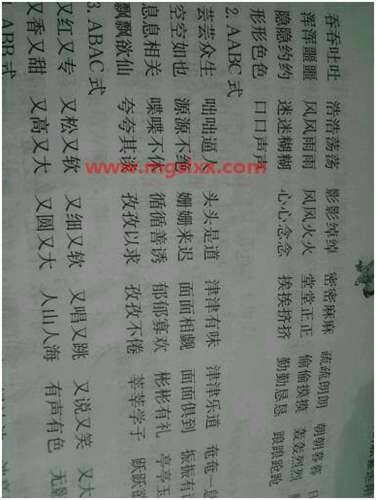 吞吞吐吐 浩浩荡荡 影影绰绰 密密麻麻 疏疏朗朗 朝朝暮暮
浑浑噩噩 风风雨雨 风风火火 堂堂正正 偷偷摸摸 轰轰烈烈
隐隐约约 迷迷糊糊 心心念念 挨挨挤挤 勤勤恳恳 踉踉跄跄
形形色色 口口声声
2. AABC 式
芸芸众生 咄咄逼 头头是道 津津有味 津津乐道 奄奄一
空空如也 源源不绝 姗姗来迟 面面相觑 面面俱到 振振有
息息相关 喋喋不休 循循善诱 郁郁寡欢 彬彬有礼 亭亭玉
飘飘欲仙 夸夸其谈 孜孜以求 孜孜不倦 莘莘学子 跃跃欲
3. ABAC 式
又红又专 又松又软 又细又软 又唱又跳 又说又笑 又大
又香又甜 又高又大 又圆又大 人山人海 有声有色 无
ABB 式
www.mgslxx.com